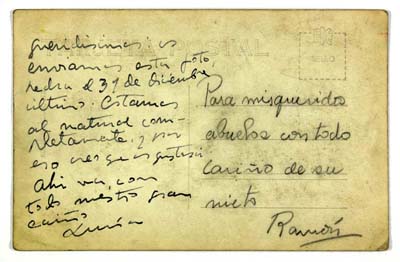 TARJETA POSTAL
queridisimos os
enviamos esta foto,
hecha el 31 de diciembre
último. Estamos
al natural com-
pletamente, y por
eso creo que os gustará
Ahi va, con
todo nuestro gran
cariño
Para mis queridos
abuelos con todo
cariño de su
nieto
Ramón